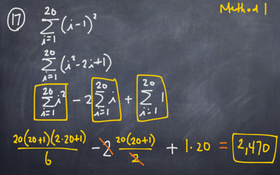 Method 1
17 \sum_{i=1}^{20} (i-1)^2
\sum_{i=1}^{20} (i^2-2i+1)
\sum_{i=1}^{20} i^2 - 2 \sum_{i=1}^{20} i + \sum_{i=1}^{20} 1
\frac{20(20+1)(2·20+1)}{6} - 2 \frac{20(20+1)}{2} + 1·20 = 2,470